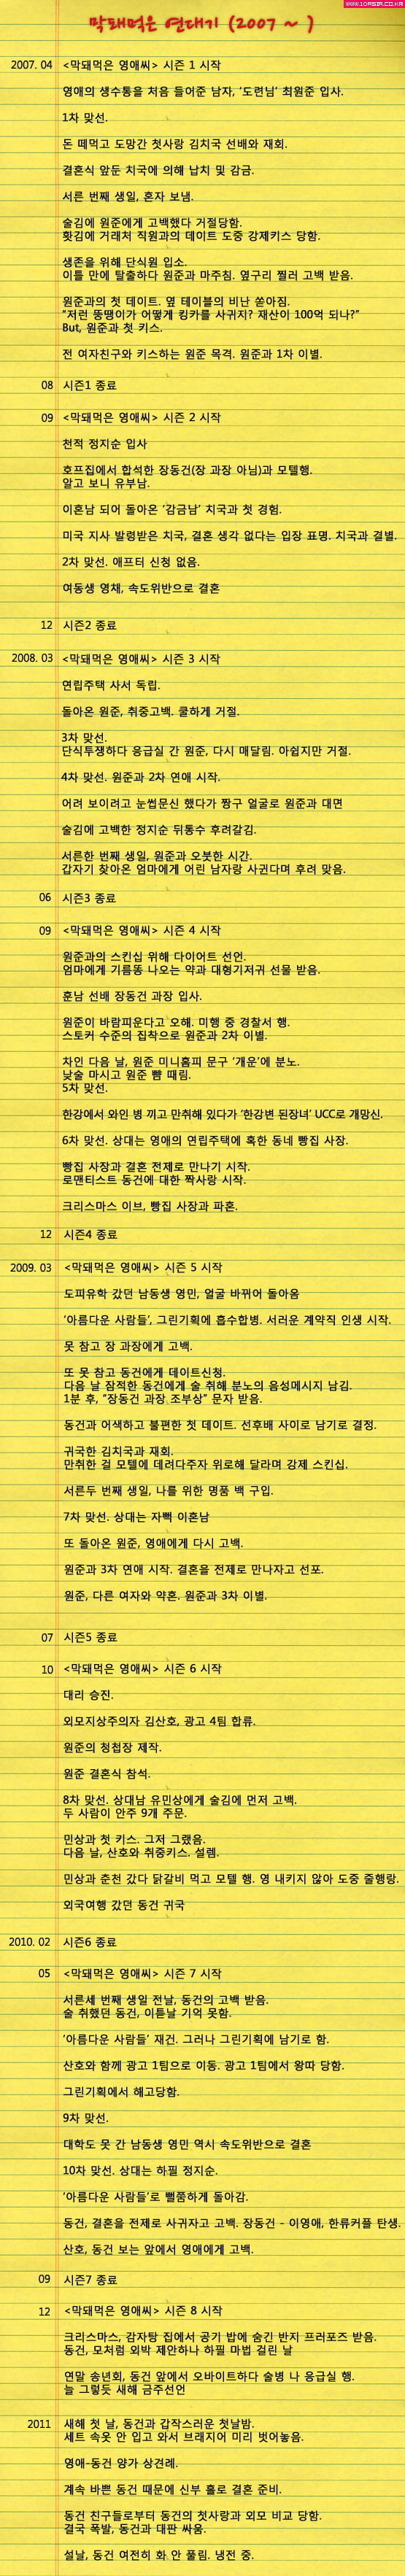 WWW.10ASIA.CO.KR
막돼먹은 연대기 (2007 ~ )
2007. 04 <막돼먹은 영애씨> 시즌 1 시작
영애의 생수통을 처음 들어준 남자, ‘도련님’ 최원준 입사.
1차 맞선.
돈 떼먹고 도망간 첫사랑 김치국 선배와 재회.
결혼식 앞둔 치국에 의해 납치 및 감금.
서른 번째 생일, 혼자 보냄.
술김에 원준에게 고백했다 거절당함.
홧김에 거래처 직원과의 데이트 도중 강제키스 당함.
생존을 위해 단식원 입소.
이틀 만에 탈출하다 원준과 마주침. 옆구리 찔러 고백 받음.
원준과의 첫 데이트. 옆 테이블의 비난 쏟아짐.
“저런 뚱땡이가 어떻게 킹카를 사귀지? 재산이 100억 되나?”
But, 원준과 첫 키스.
전 여자친구와 키스하는 원준 목격. 원준과 1차 이별.
08 시즌1 종료
09 <막돼먹은 영애씨> 시즌 2 시작
천적 정지순 입사
호프집에서 합석한 장동건(장 과장 아님)과 모텔행.
알고 보니 유부남.
이혼남 되어 돌아온 ‘감금남’ 치국과 첫 경험.
미국 지사 발령받은 치국, 결혼 생각 없다는 입장 표명. 치국과 결별.
2차 맞선. 애프터 신청 없음.
여동생 영채, 속도위반으로 결혼
12 시즌2 종료
2008. 03 <막돼먹은 영애씨> 시즌 3 시작
연립주택 사서 독립.
돌아온 원준, 취중고백. 쿨하게 거절.
3차 맞선.
단식투쟁하다 응급실 간 원준, 다시 매달림. 아쉽지만 거절.
4차 맞선. 원준과 2차 연애 시작.
어려 보이려고 눈썹문신 했다가 짱구 얼굴로 원준과 대면
술김에 고백한 정지순 뒤통수 후려갈김.
서른한 번째 생일, 원준과 오붓한 시간.
갑자기 찾아온 엄마에게 어린 남자랑 사귄다며 후려 맞음.
06 시즌3 종료
09 <막돼먹은 영애씨> 시즌 4 시작
원준과의 스킨십 위해 다이어트 선언.
엄마에게 기름똥 나오는 약과 대형기저귀 선물 받음.
훈남 선배 장동건 과장 입사.
원준이 바람피운다고 오해. 미행 중 경찰서 행.
스토커 수준의 집착으로 원준과 2차 이별.
차인 다음 날, 원준 미니홈피 문구 ‘개운’에 분노.
낮술 마시고 원준 뺨 때림.
5차 맞선.
한강에서 와인 병 끼고 만취해 있다가 ‘한강변 된장녀’ UCC로 개망신.
6차 맞선. 상대는 영애의 연립주택에 혹한 동네 빵집 사장.
빵집 사장과 결혼 전제로 만나기 시작.
로맨티스트 동건에 대한 짝사랑 시작.
크리스마스 이브, 빵집 사장과 파혼.
12 시즌4 종료
2009. 03 <막돼먹은 영애씨> 시즌 5 시작
도피유학 갔던 남동생 영민, 얼굴 바뀌어 돌아옴
‘아름다운 사람들’, 그린기획에 흡수합병. 서러운 계약직 인생 시작.
못 참고 장 과장에게 고백.
또 못 참고 동건에게 데이트신청.
다음 날 잠적한 동건에게 술 취해 분노의 음성메시지 남김.
1분 후, “장동건 과장 조부상” 문자 받음.
동건과 어색하고 불편한 첫 데이트. 선후배 사이로 남기로 결정.
귀국한 김치국과 재회.
만취한 걸 모텔에 데려다주자 위로해 달라며 강제 스킨십.
서른두 번째 생일, 나를 위한 명품 백 구입.
7차 맞선. 상대는 자뻑 이혼남
또 돌아온 원준, 영애에게 다시 고백.
원준과 3차 연애 시작. 결혼을 전제로 만나자고 선포.
원준, 다른 여자와 약혼. 원준과 3차 이별.
07 시즌5 종료
10 <막돼먹은 영애씨> 시즌 6 시작
대리 승진.
외모지상주의자 김산호, 광고 4팀 합류.
원준의 청첩장 제작.
원준 결혼식 참석.
8차 맞선. 상대남 유민상에게 술김에 먼저 고백.
두 사람이 안주 9개 주문.
민상과 첫 키스. 그저 그랬음.
다음 날, 산호와 취중키스. 설렘.
민상과 춘천 갔다 닭갈비 먹고 모텔 행. 영 내키지 않아 도중 줄행랑.
외국여행 갔던 동건 귀국
2010. 02 시즌6 종료
05 <막돼먹은 영애씨> 시즌 7 시작
서른세 번째 생일 전날, 동건의 고백 받음.
술 취했던 동건, 이튿날 기억 못함.
‘아름다운 사람들’ 재건. 그러나 그린기획에 남기로 함.
산호와 함께 광고 1팀으로 이동. 광고 1팀에서 왕따 당함.
그린기획에서 해고당함.
9차 맞선.
대학도 못 간 남동생 영민 역시 속도위반으로 결혼
10차 맞선. 상대는 하필 정지순.
‘아름다운 사람들’로 뻘쭘하게 돌아감.
동건, 결혼을 전제로 사귀자고 고백. 장동건 - 이영애, 한류커플 탄생.
산호, 동건 보는 앞에서 영애에게 고백.
09 시즌7 종료
12 <막돼먹은 영애씨> 시즌 8 시작
크리스마스, 감자탕 집에서 공기 밥에 숨긴 반지 프러포즈 받음.
동건, 모처럼 외박 제안하나 하필 마법 걸린 날
연말 송년회, 동건 앞에서 오바이트하다 술병 나 응급실 행.
늘 그렇듯 새해 금주선언
2011 새해 첫 날, 동건과 갑작스러운 첫날밤.
세트 속옷 안 입고 와서 브래지어 미리 벗어놓음.
영애-동건 양가 상견례.
계속 바쁜 동건 때문에 신부 홀로 결혼 준비.
동건 친구들로부터 동건의 첫사랑과 외모 비교 당함.
결국 폭발, 동건과 대판 싸움.
설날, 동건 여전히 화 안 풀림. 냉전 중.